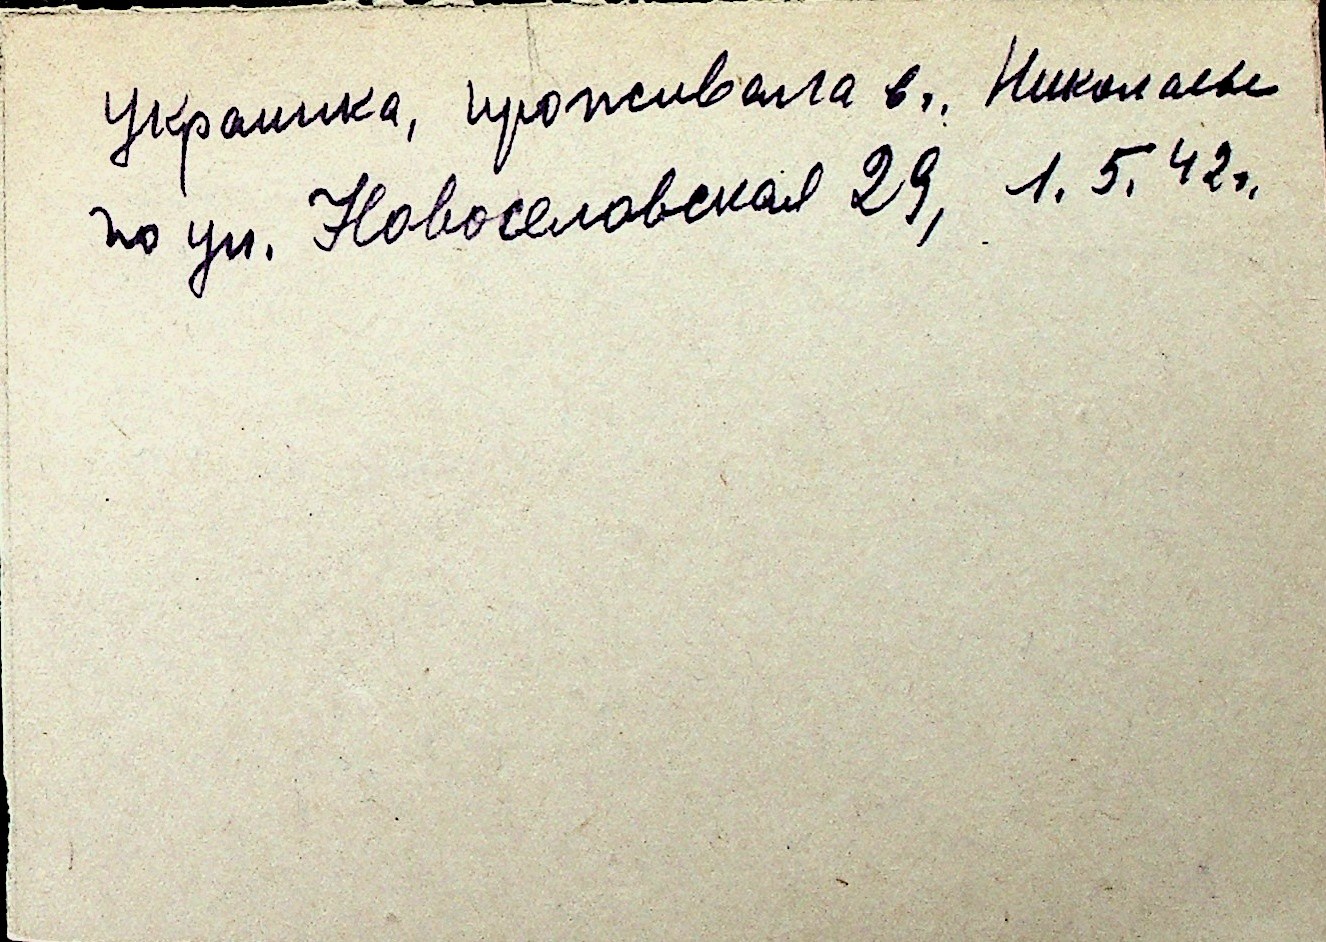 Украинка, проживала в г. Николаеве
по ул. Новоселовская 29, 1. 5. 42г.